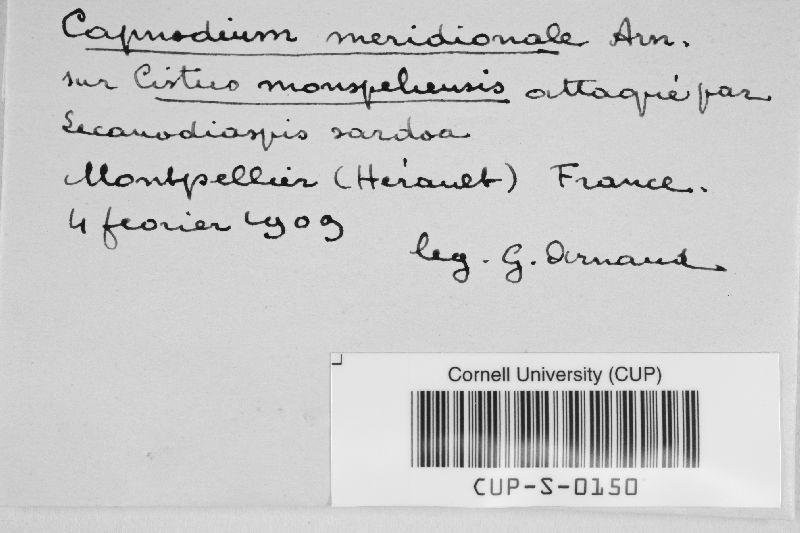 Capnodium meridionale Arn.
sur Cistus monspeliensis attaqué par
Lecanodiaspis sardoa
Montpellier (Hérault) France.
4 fevrier 1909
leg. G. Arnaud.
Cornell University (CUP)
CUP-S-0150